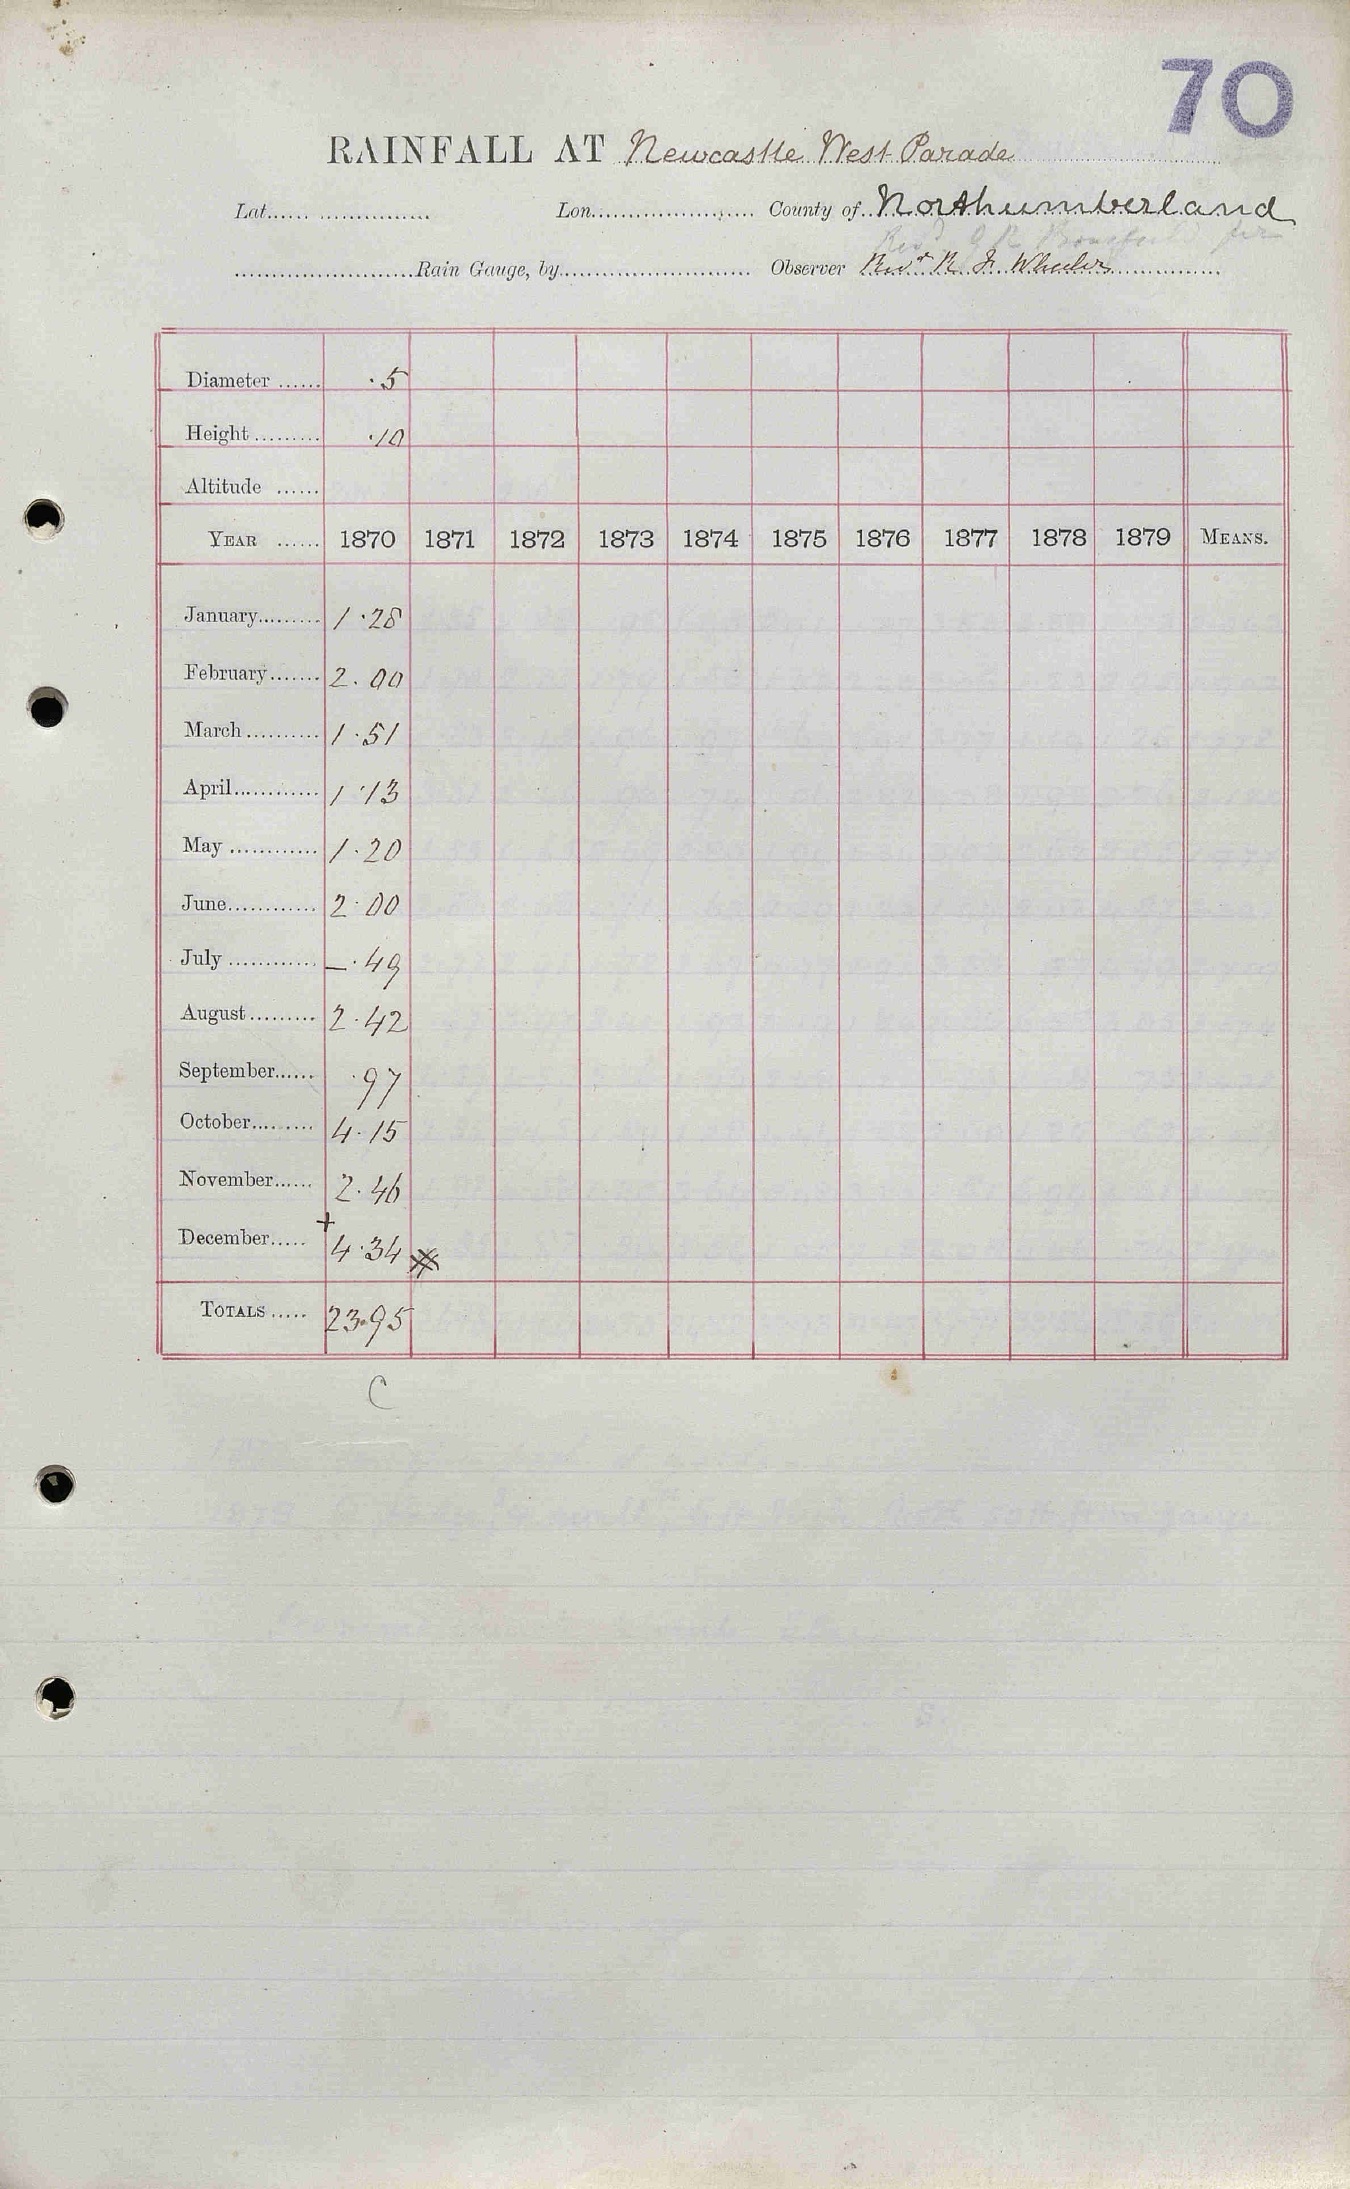 70
RAINFALL AT Newcastle West Parade
Lat. Lon. County of Northumberland
Revd
Rain Gauge, by Observer Revd R. F. Wheeler
Diameter ·5
Height ·10
Altitude
YEAR 1870 1871 1872 1873 1874 1875 1876 1877 1878 1879 MEANS.
January 1·28
February 2.00
March 1·51
April 1·13
May 1·20
June 2·00
July —·49
August 2·42
September ·97
October 4·15
November 2·46
+
December 4·34
TOTALS 23·95
C